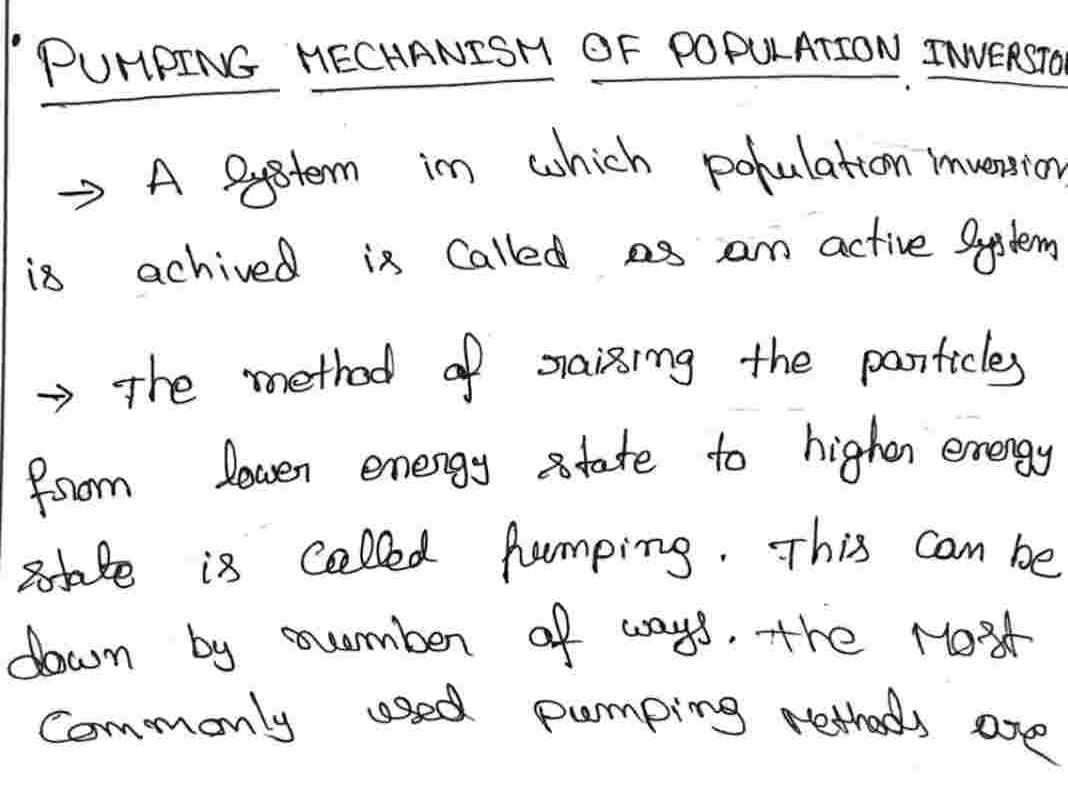 • PUMPING MECHANISM OF POPULATION INVERSION
→ A system in which population inversion
is achived is called as an active system
→ The method of raising the particles
from lower energy state to higher energy
state is called pumping. This can be
down by number of ways. The Most
Commonly used pumping methods are